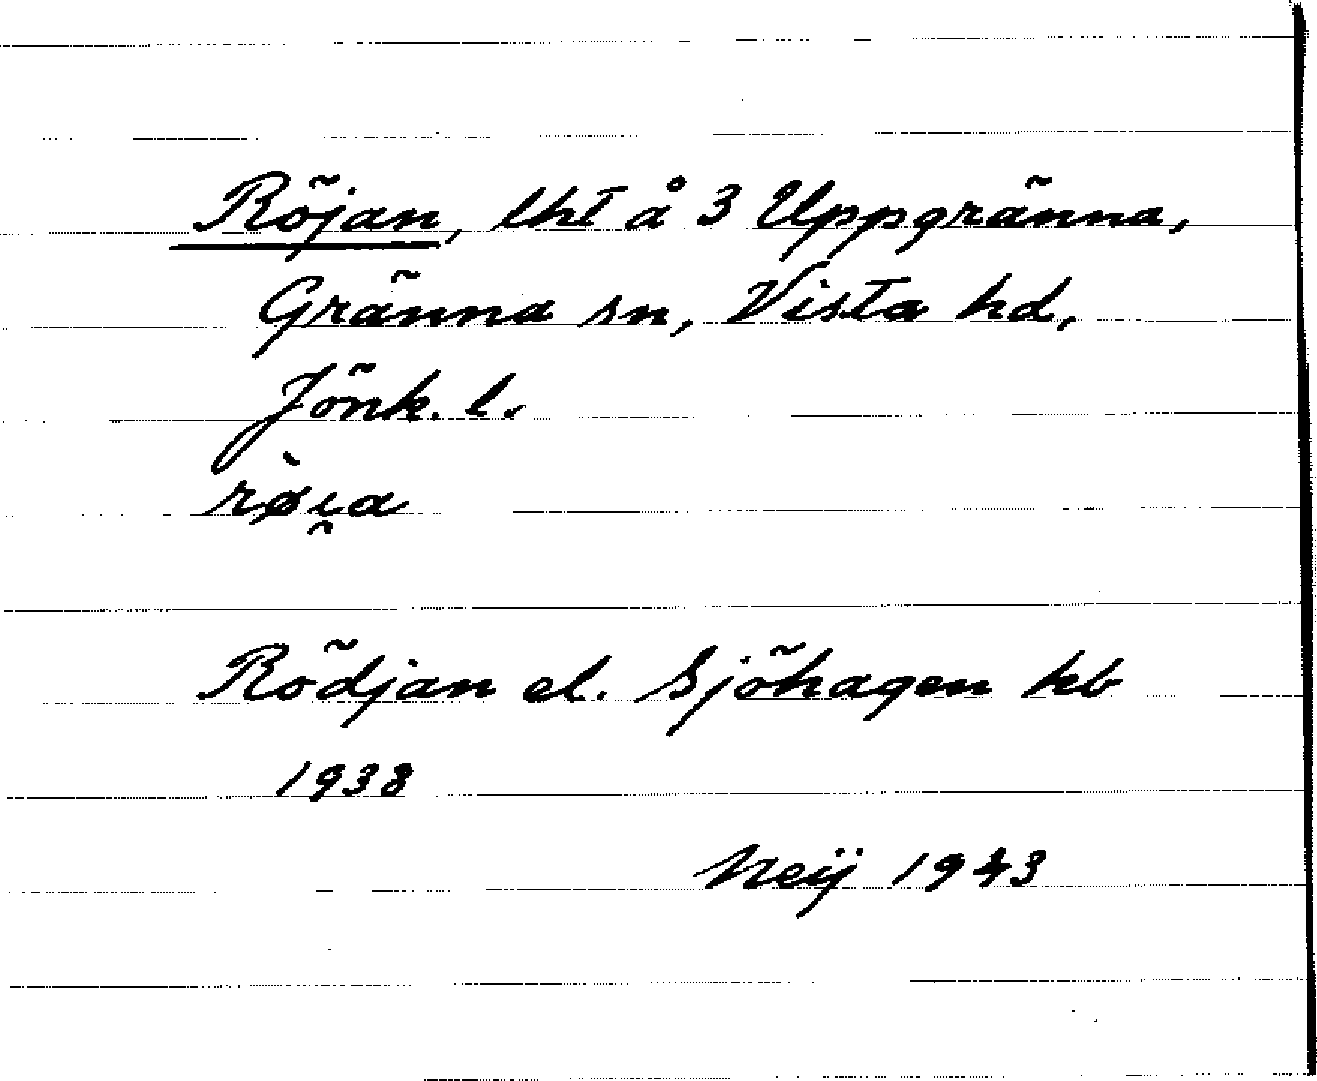 Röjan, lht å 3 Uppgränna,
Gränna sn, Vista hd,
Jönk. l.
rø̀i̯a
Rödjan el. Sjöhagen kb
1938
Neij 1943